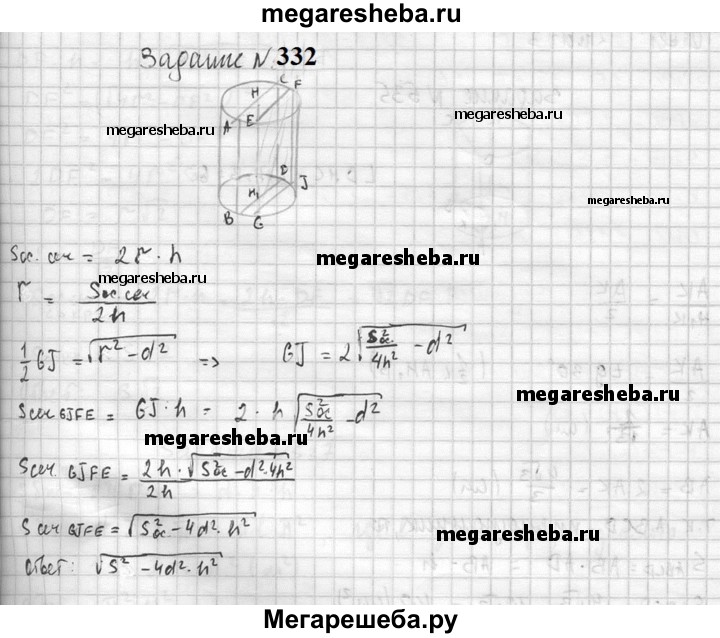 megaresheba.ru
Задание N 332
C F
H
A E
megaresheba.ru
megaresheba.ru
D J
H₁
B G
megaresheba.ru
Sос. сеч = 2r · h
megaresheba.ru
megaresheba.ru
r = Sос.сеч / 2h
½ GJ = √(r² - d²) => GJ = 2√(S²ос / 4h² - d²)
megaresheba.ru
Sсеч GJFE = GJ · h = 2 · h √(S²ос / 4h² - d²)
megaresheba.ru
Sсеч. GJFE = 2h · √(S²ос - d² · 4h²) / 2h
Sсеч GJFE = √(S²ос - 4d² · h²)
megaresheba.ru
Ответ: √(S² - 4d² · h²)
Мегарешеба.ру